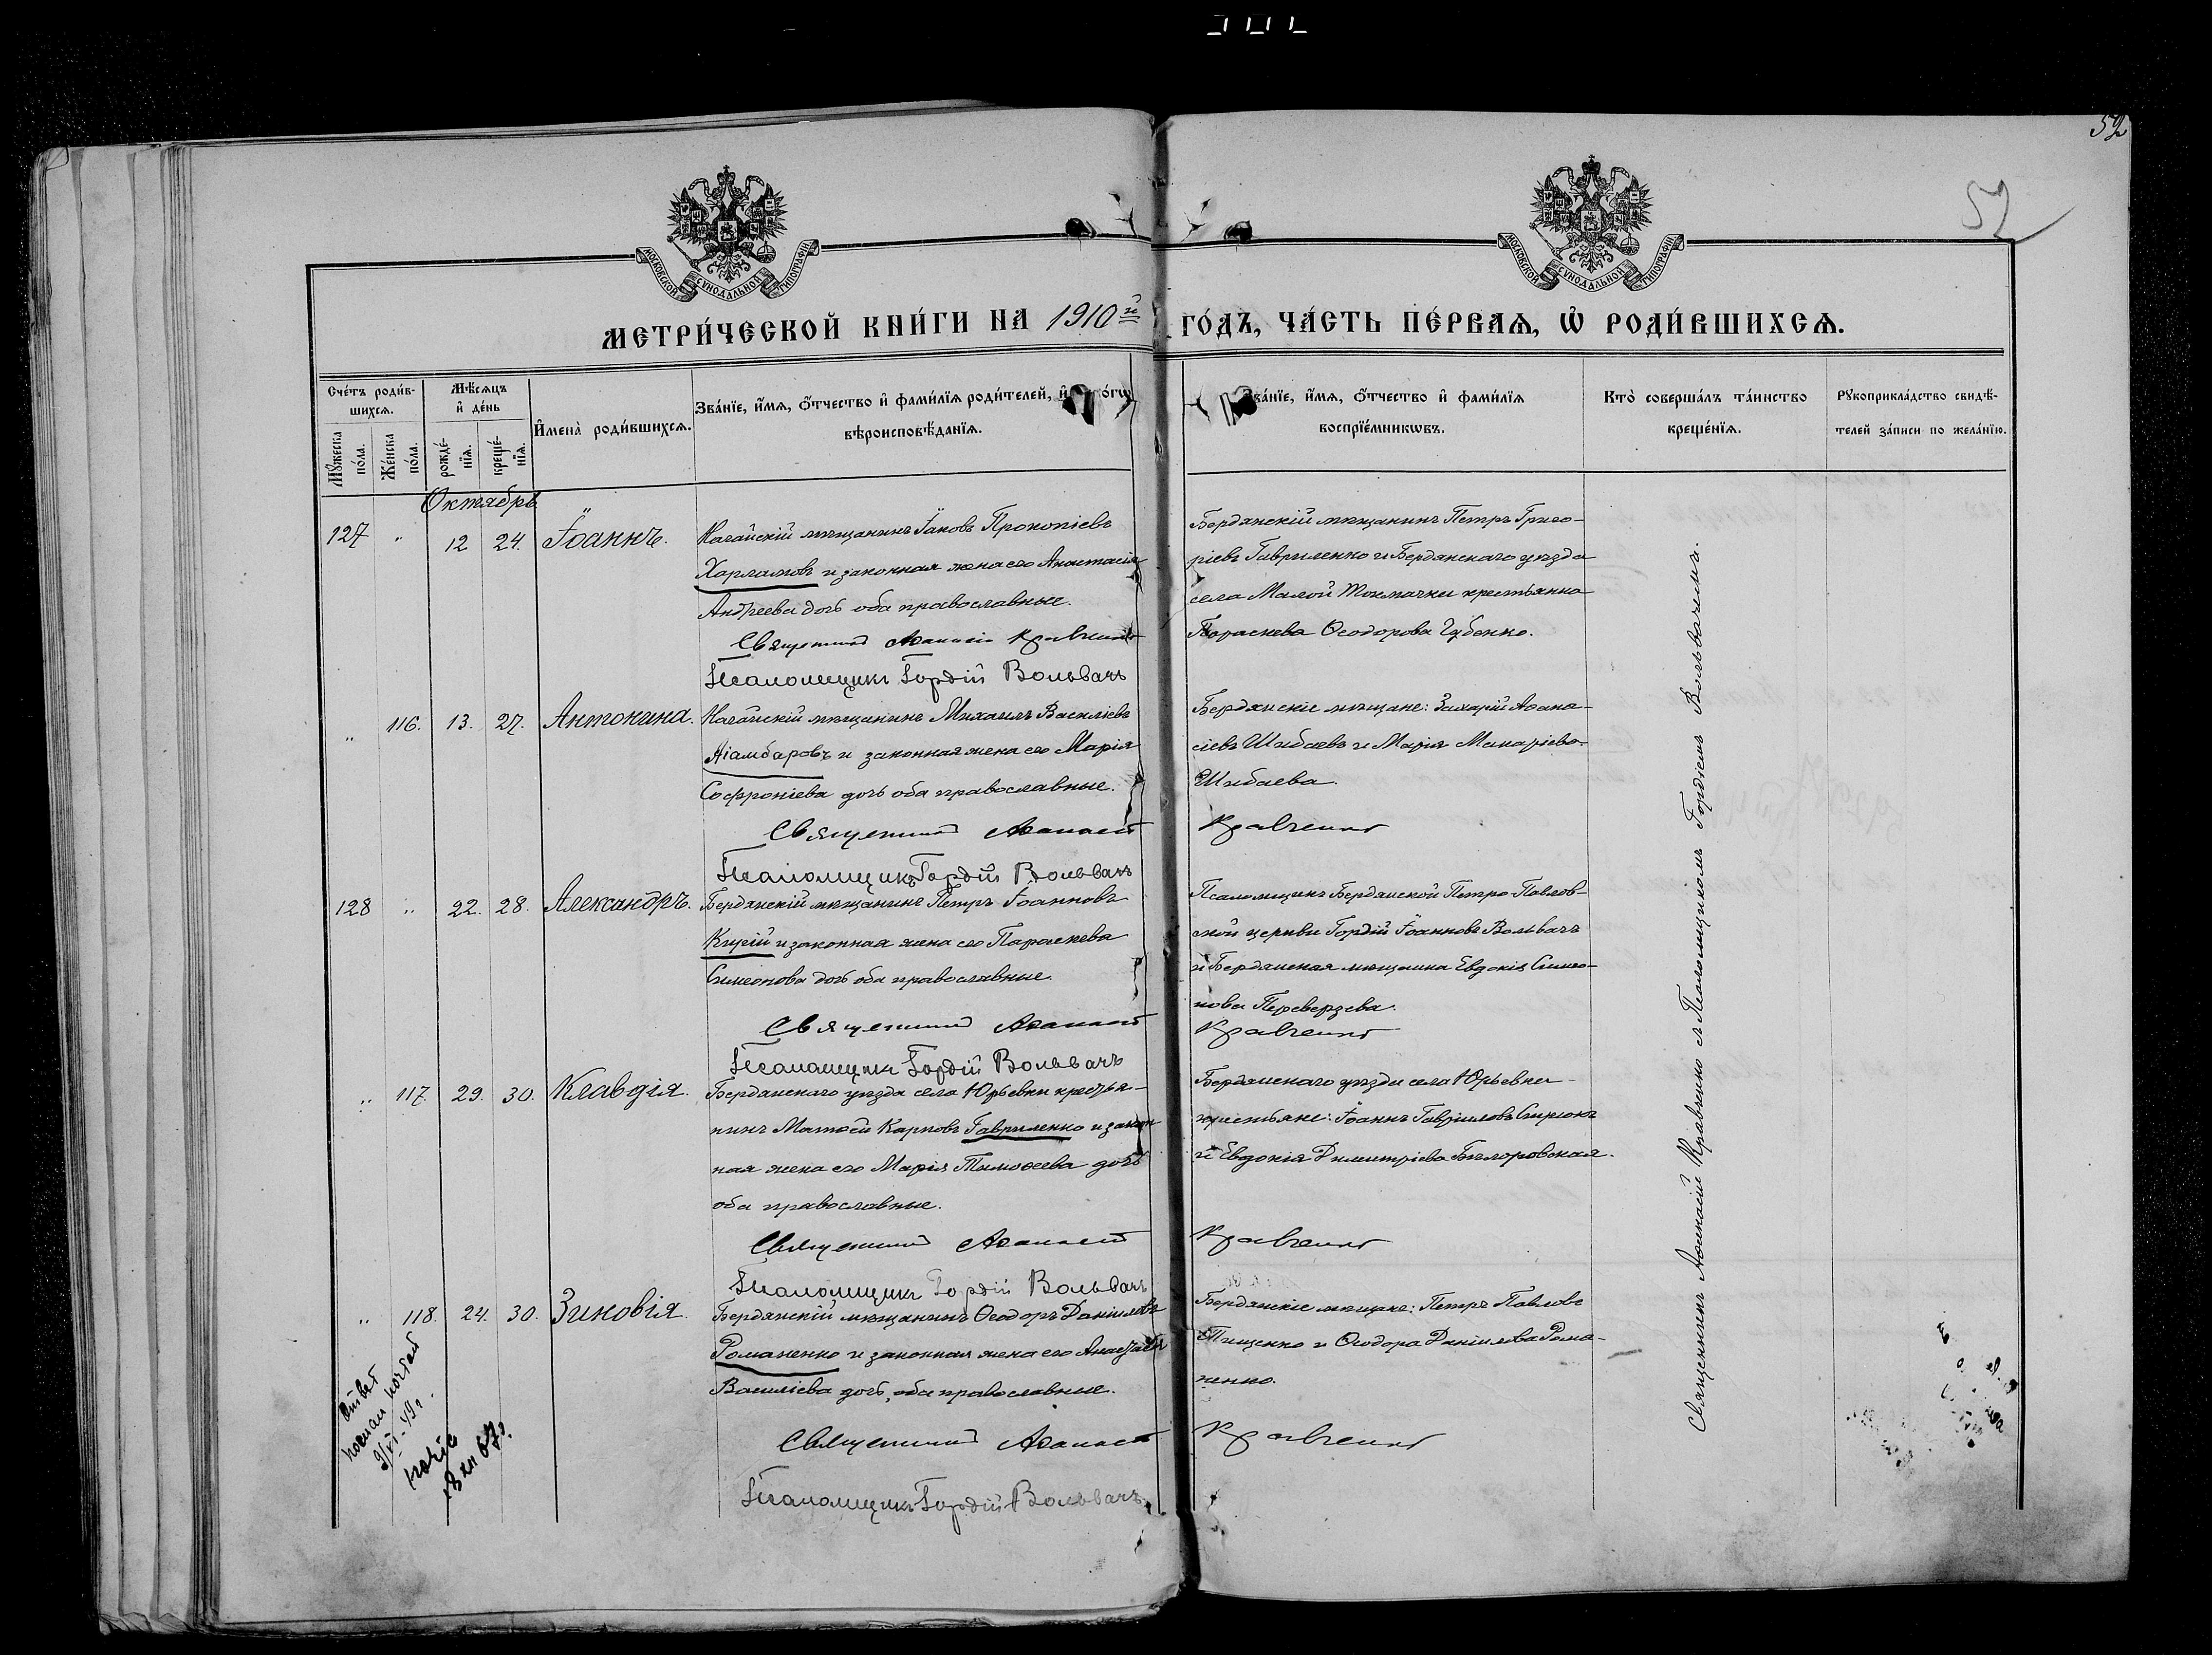 52
52
МОСКОВСКОЙ СѴНОДАЛЬНОЙ ТИПОГРАФІИ
МОСКОВСКОЙ СѴНОДАЛЬНОЙ ТИПОГРАФІИ
МЕТРИ́ЧЕСКОЙ КНИ́ГИ НА 1910й ГО́ДЪ, ЧА́СТЬ ПЕ́РВАѦ, Ѡ҆ РОДИ́ВШИХСѦ.
Сче́тъ роди́вшихсѧ.
Мꙋ́жеска по́ла.
Же́нска по́ла.
Мѣ́сѧцъ и҆ де́нь
рожде́нїѧ.
креще́нїѧ.
И҆мена̀ роди́вшихсѧ.
Зва́нїе, и҆́мѧ, ѻ҆́тчество и҆ фами́лїѧ роди́телей, и҆
вѣроисповѣ́данїѧ.
Зва́нїе, и҆́мѧ, ѻ҆́тчество и҆ фами́лїѧ
воспрїе́мникѡвъ.
Кто̀ соверша́лъ та́инство
креще́нїѧ.
Рꙋкоприкла́дство свидѣ́-
телей за́писи по жела́нїю.
Октябрь
127 " 12 24. Іоаннъ.
Ногайскій мѣщанинъ Іаковъ Прокопіевъ
Харламовъ и законная жена его Анастасія
Андреева дочь оба православные.
Священникъ Аѳанасій Кравченко
Псаломщикъ Гордій Вольвачъ
Бердянскій мѣщанинъ Петръ Григо-
ріевъ Гавриленко и Бердянскаго уѣзда
села Малой Токмачки крестьянка
Параскева Ѳеодорова Губенко.
" 116. 13. 27. Антонина.
Ногайскій мѣщанинъ Михаилъ Василіевъ
Аіамбаровъ и законная жена его Марія
Софроніева дочь оба православные.
Священникъ Аѳанасій Кравченко
Псаломщикъ Гордій Вольвачъ
Бердянскіе мѣщане: Захарій Аѳана-
сіевъ Шибаевъ и Марія Макаріева
Шибаева
128 " 22. 28. Александръ.
Бердянскій мѣщанинъ Петръ Іоанновъ
Кирій и законная жена его Параскева
Симеонова дочь оба православные
Священникъ Аѳанасій Кравченко
Псаломщикъ Гордій Вольвачъ
Псаломщикъ Бердянской Петро-Павлов-
ской церкви Гордій Іоанновъ Вольвачъ
и Бердянская мѣщанка Евдокія Симео-
нова Переверзева.
" 117. 29. 30. Клавдія.
Бердянскаго уѣзда села Юрьевки крестья-
нинъ Матѳей Карповъ Гавриленко и закон-
ная жена его Марія Тимоѳеева дочь
оба православные.
Священникъ Аѳанасій Кравченко
Псаломщикъ Гордій Вольвачъ
Бердянскаго уѣзда села Юрьевки
крестьяне: Іоаннъ Гавріиловъ
и Евдокія Димитріева
" 118. 24. 30. Зиновія.
Бердянскій мѣщанинъ Ѳеодоръ Даніиловъ
Романенко и законная жена его Анастасія
Василіева дочь, оба православные.
Священникъ Аѳанасій Кравченко
Псаломщикъ Гордій Вольвачъ
Бердянскіе мѣщане: Петръ Павловъ
Тищенко и Ѳеодора Даніилова Рома-
ненко.
Священникъ Аѳанасій Кравченко съ Псаломщикомъ Гордіемъ Вольвачемъ.